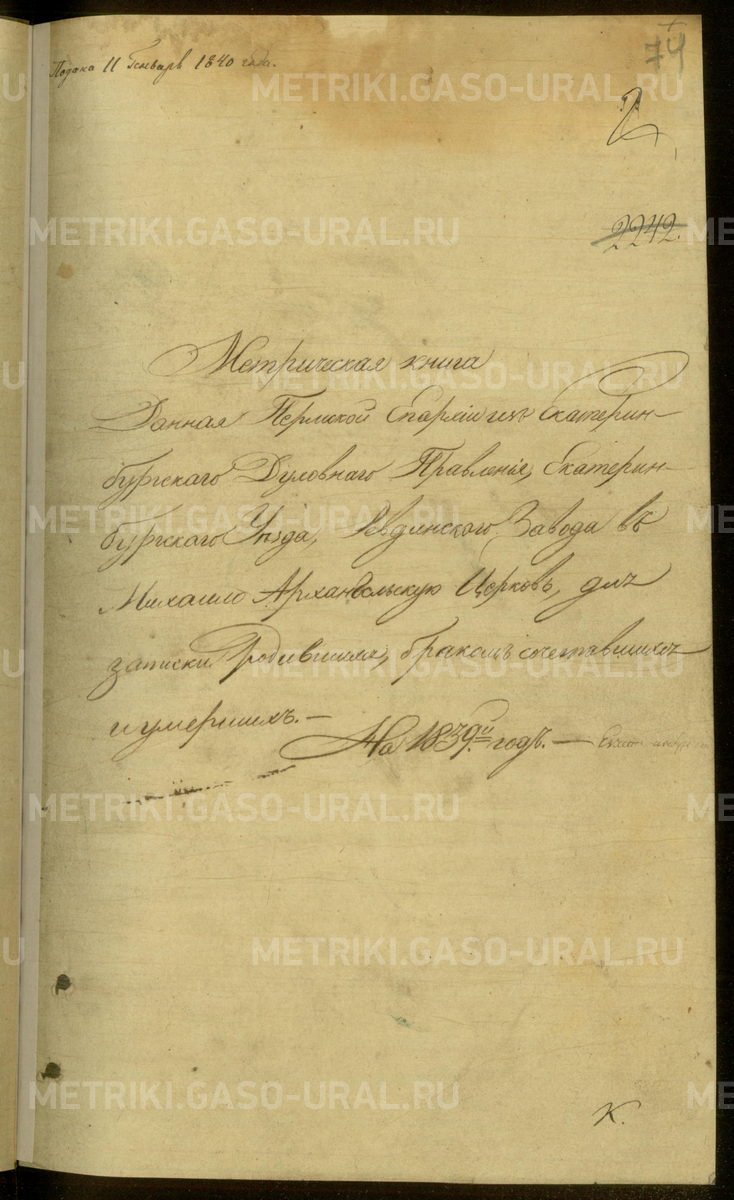 Подана 11 Генваря 1840 года.
74
2242.
Метрическая книга
Данная Пермской Епархіи изъ Екатерин-
бургскаго Духовнаго Правленія, Екатерин-
бургскаго Уѣзда, Ревдинскаго Завода въ
Михаило Архангельскую Церковь, для
записки Родившихся, бракомъ сочетавшихся
и умершихъ.—
На 1839й годъ.—
К.
METRIKI.GASO-URAL.RU